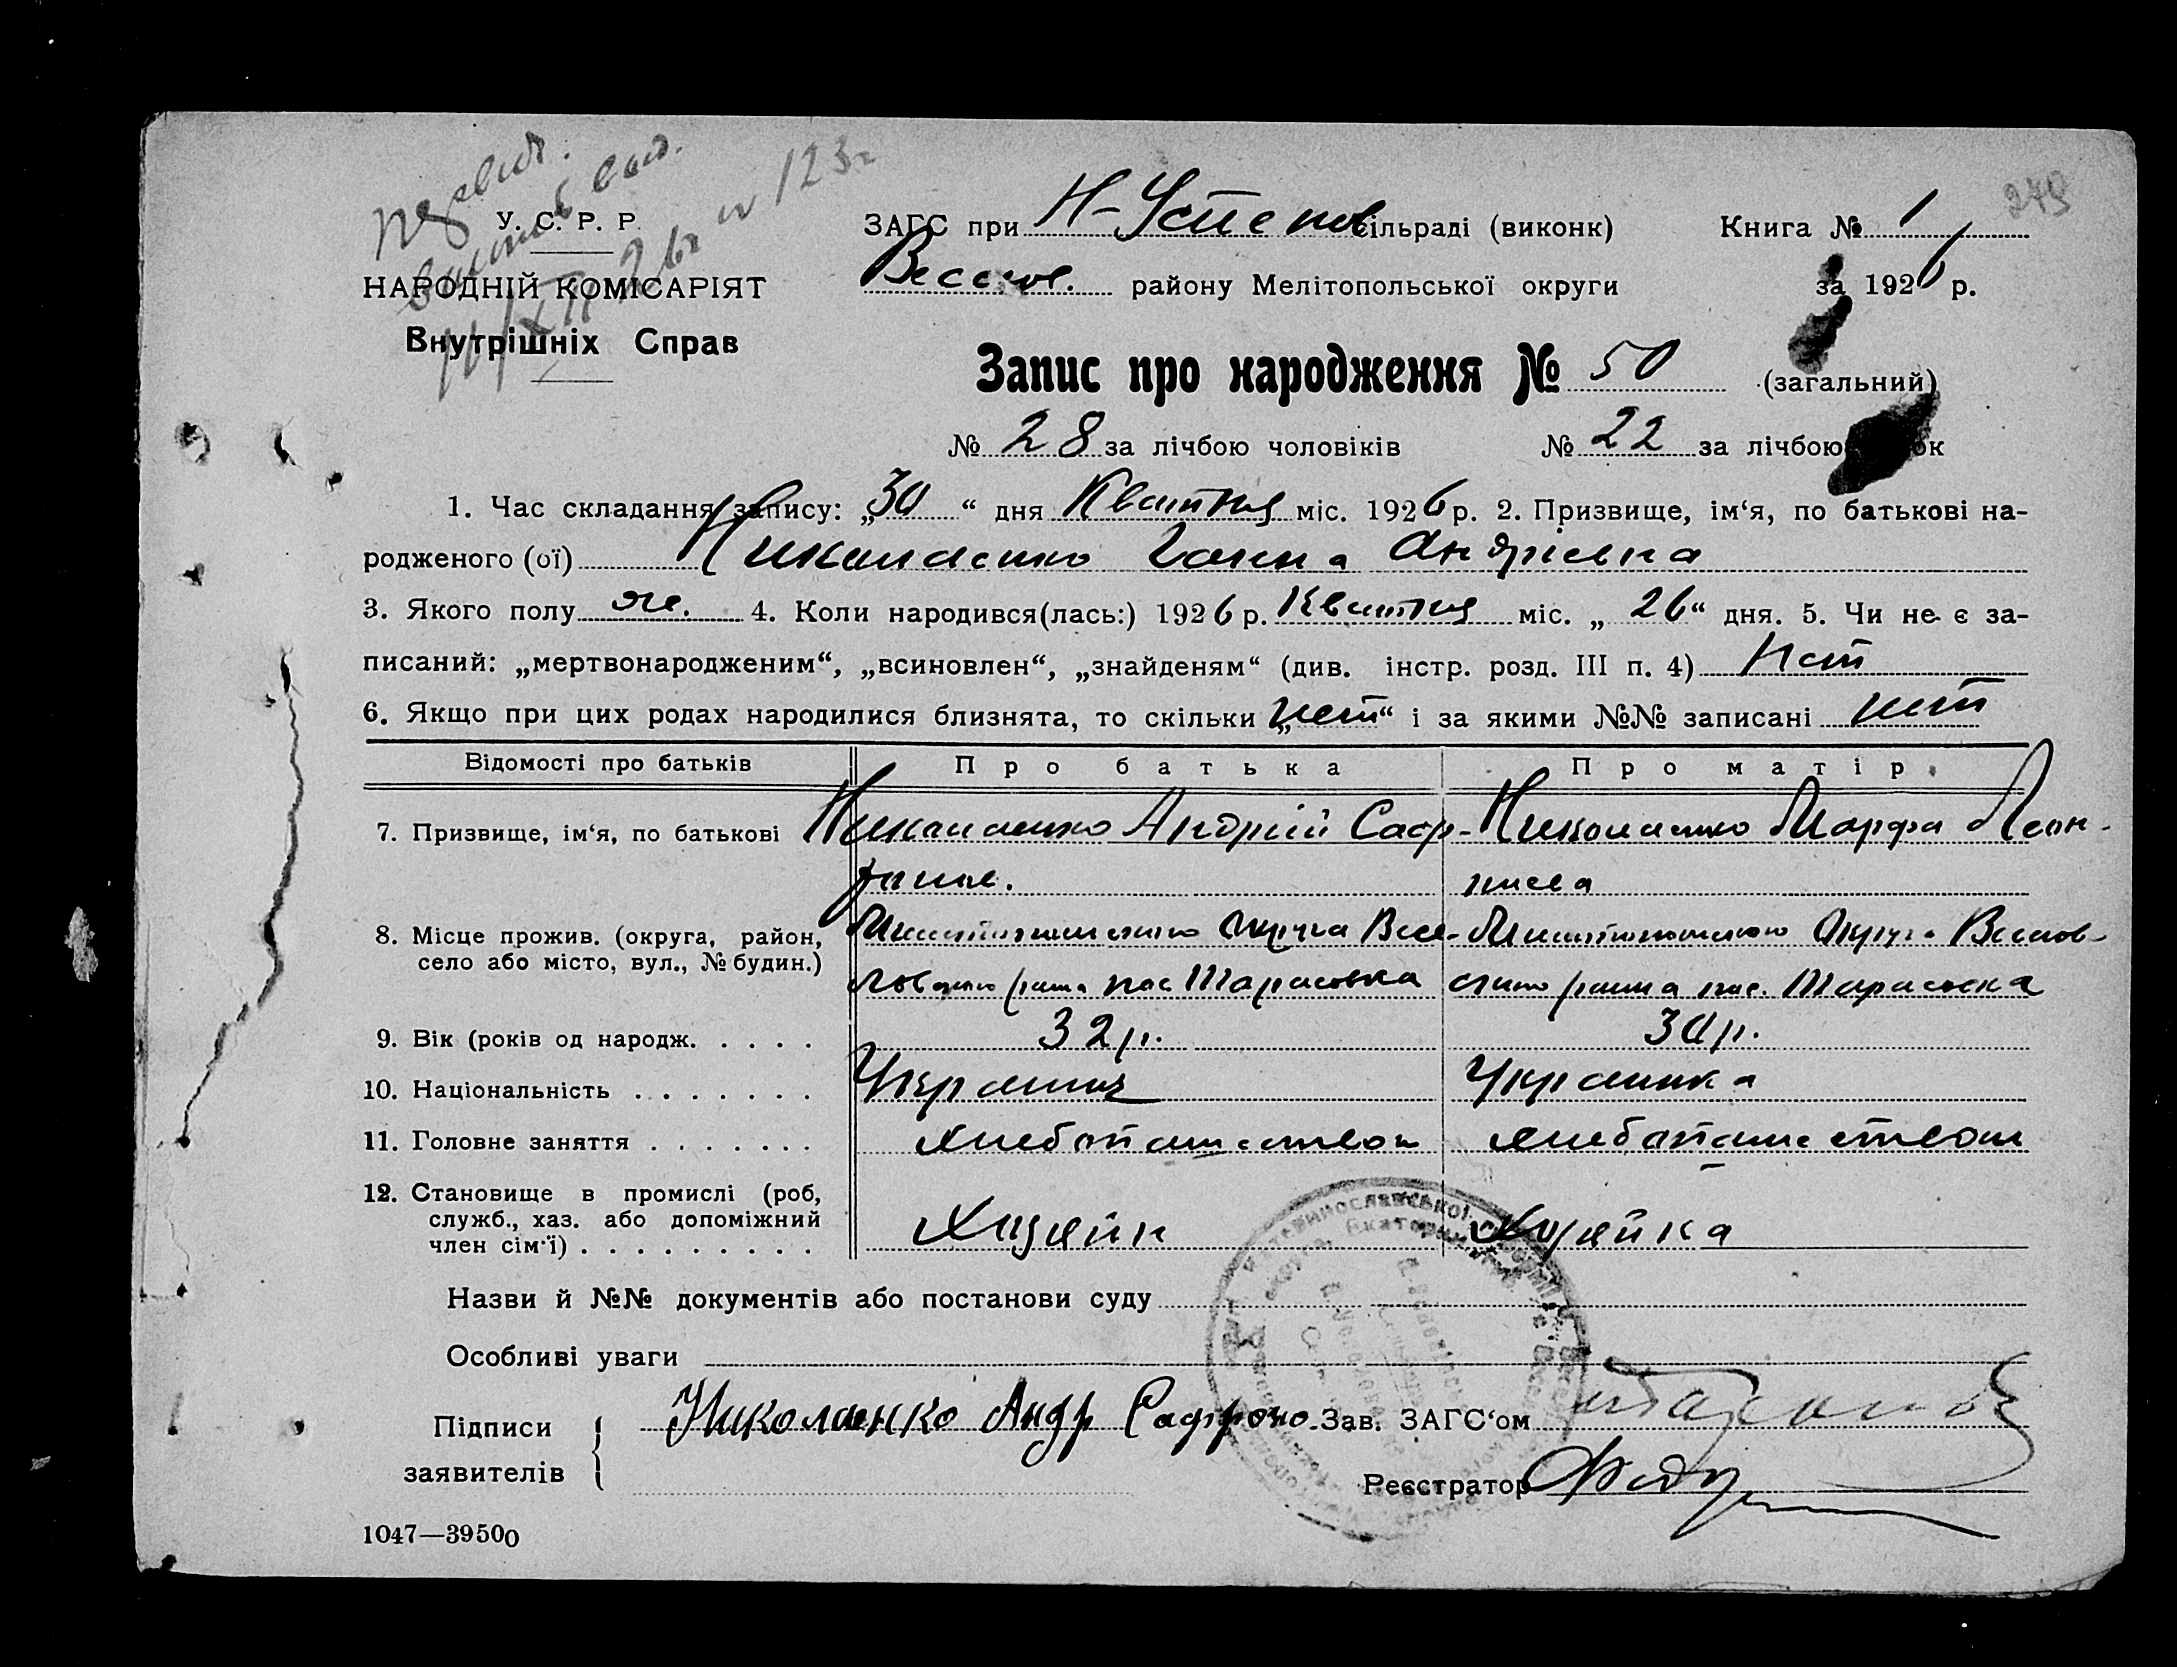 273
У. С. Р. Р.
ЗАГС при Н-Успенов сільраді (виконк) Книга № 1
НАРОДНІЙ КОМІСАРІЯТ
Весел. району Мелітопольської округи за 1926 р.
Внутрішніх Справ
Запис про народження № 50 (загальний)
№ 28 за лічбою чоловіків № 22 за лічбою
1. Час складання запису: „30“ дня Квітня міс. 1926 р. 2. Призвище, ім‘я, по батькові на-
родженого (ої) Николаенко Ганна Андріевна
3. Якого полу же. 4. Коли народився(лась:) 1926 р. Квітня міс. „26“ дня. 5. Чи не є за-
писаний: „мертвонародженим“, „всиновлен“, „знайденям“ (див. інстр. розд. III п. 4) Нет
6. Якщо при цих родах народилися близнята, то скільки „нет“ і за якими №№ записані нет
Відомості про батьків Про батька Про матір
7. Призвище, ім‘я, по батькові Николаенко Андрій Саф- Николаенко Марфа Леон-
тиева
8. Місце прожив. (округа, район, село або місто, вул., № будин.) Округа Весе- Округа Веселов-
района пос Тарасовка района пос. Тарасовка
9. Вік (років од народж. . . . . 32 р. 30 р.
10. Національність . . . . . . . Украинец Украинка
11. Головне заняття . . . . . . . хлебопашеством хлебопашеством
12. Становище в промислі (роб, служб., хаз. або допоміжний член сім‘ї) . . . . . . . . . Хозяйн Хозяйка
Назви й №№ документів або постанови суду
Особливі уваги
Підписи заявителів Николаенко Андр Сафроно. Зав. ЗАГС‘ом
Реєстратор
1047—39500